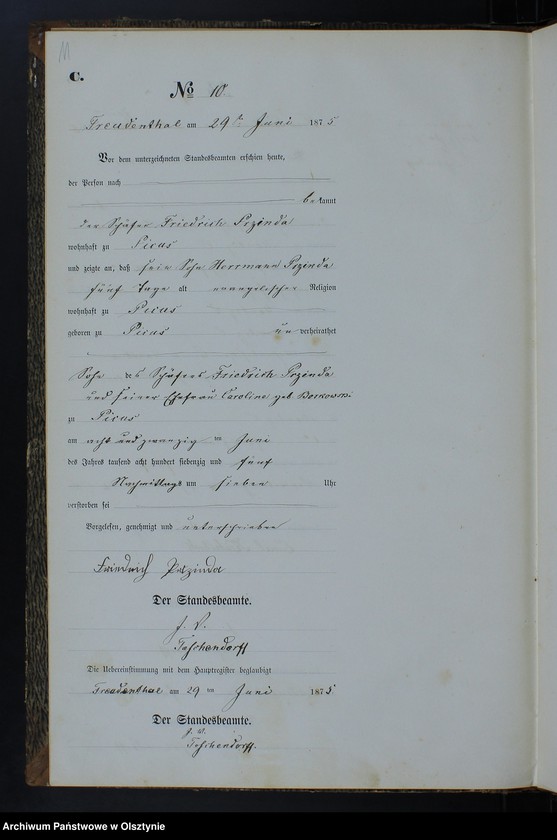 11
C.
No 10.
Freudenthal am 29ten Juni 1875
Vor dem unterzeichneten Standesbeamten erschien heute,
der Person nach
bekannt
der Schäfer Friedrich Przinda
wohnhaft zu Picus
und zeigte an, daß sein Sohn Herrmann Przinda
fünf Tage alt evangelischer Religion
wohnhaft zu Picus
geboren zu Picus un verheirathet
Sohn des Schäfers Friedrich Przinda
und seiner Ehefrau Caroline geb Borkowski
zu Picus
am acht und zwanzig ten Juni
des Jahres tausend acht hundert siebenzig und fünf
Nachmittags um sieben Uhr
verstorben sei
Vorgelesen, genehmigt und unterschrieben
Friedrich Przinda
Der Standesbeamte.
J. V.
Teschendorff
Die Uebereinstimmung mit dem Hauptregister beglaubigt
Freudenthal am 29 ten Juni 1875
Der Standesbeamte.
J. V.
Teschendorff.
Archiwum Państwowe w Olsztynie